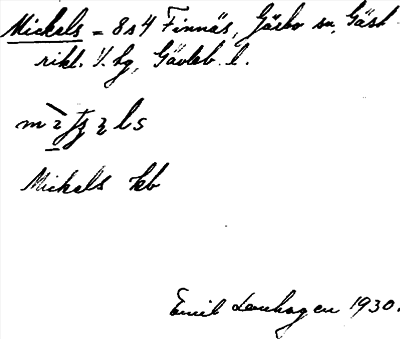 Mickels - 8s4 Finnäs, Gäsbo sn, Gäst-
rikl. V. hg, Gävleb. l.
Mickels kb
Emil Lenhagen 1930.